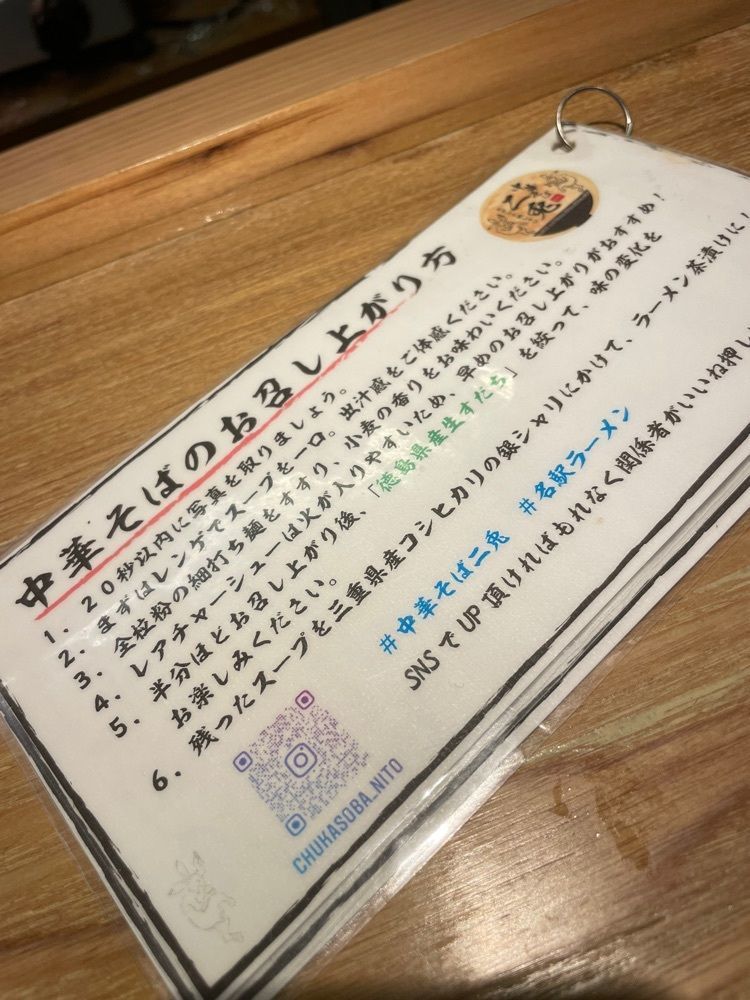 中華そば
二兎
中華そばのお召し上がり方
1. 20秒以内に写真を取りましょう。
2. まずはレンゲでスープを一口。出汁感をご体感ください。
3. 全粒粉の細打ち麺をすすり、小麦の香りをお味わいください。
4. レアチャーシューは火が入りやすいため、早めのお召し上がりがおすすめ！
5. 半分ほどお召し上がり後、「徳島県産生すだち」を絞って、味の変化を
お楽しみください。
6. 残ったスープを三重県産コシヒカリの銀シャリにかけて、ラーメン茶漬けに！
#中華そば二兎 #名駅ラーメン
SNSでUP頂ければもれなく関係者がいいね押し
CHUKASOBA_NITO